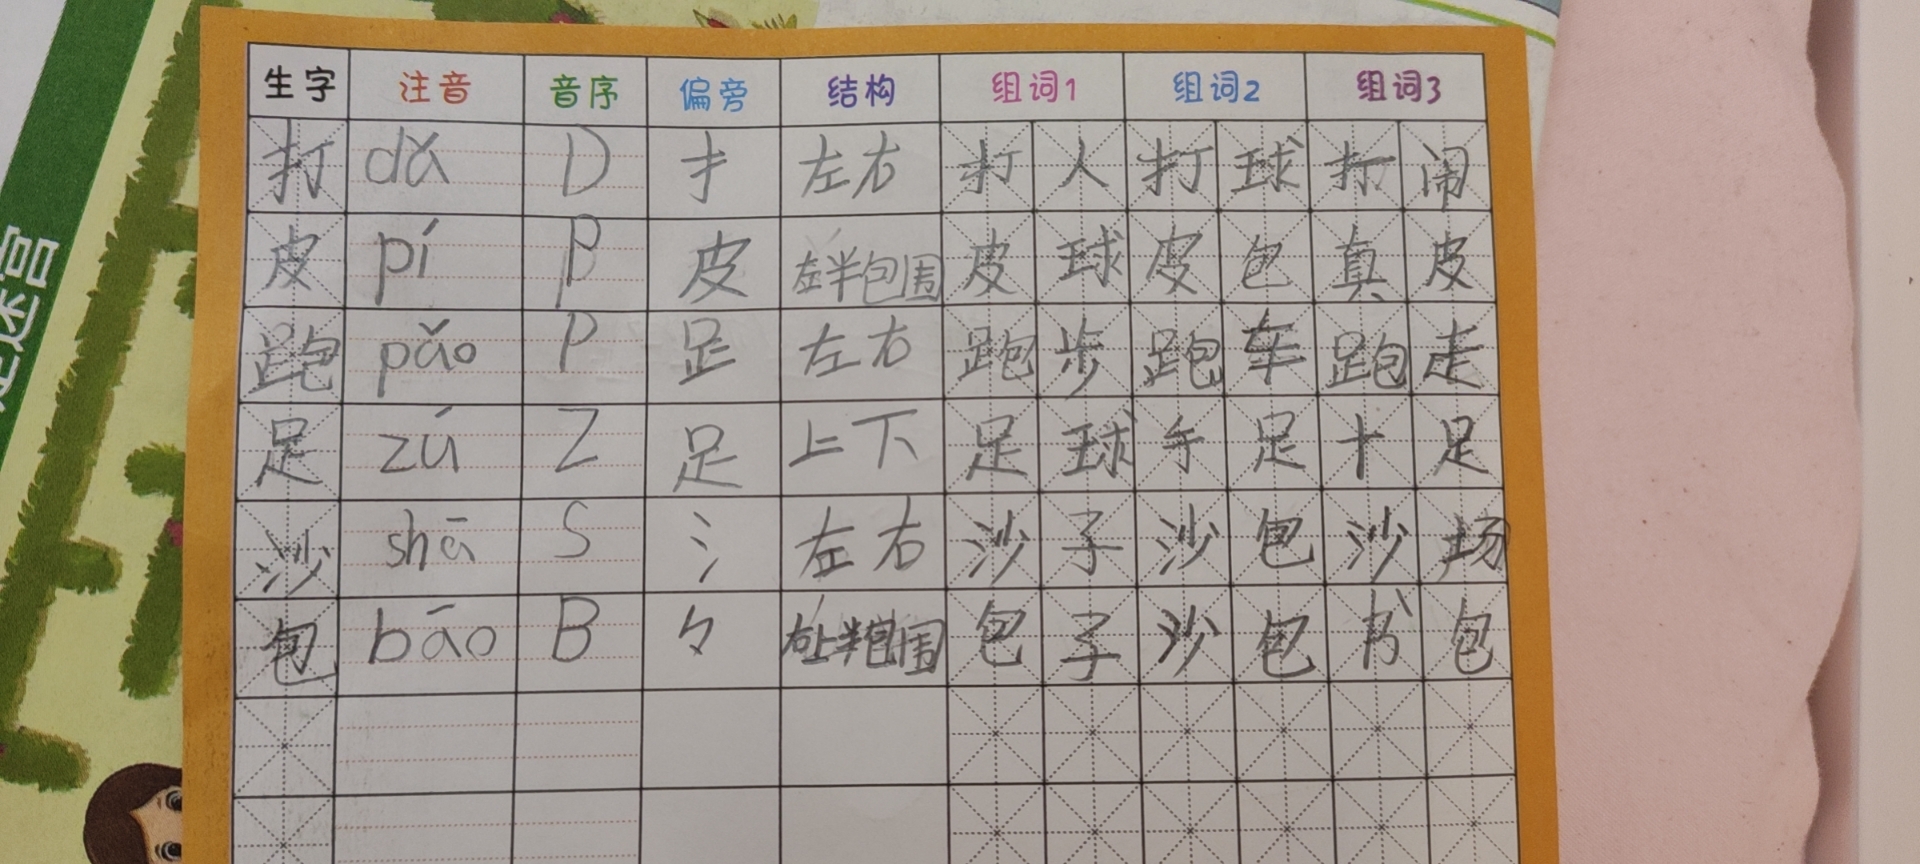 走迷宫
生字 注音 音序 偏旁 结构 组词1 组词2 组词3
打 dǎ D 扌 左右 打人 打球 打闹
皮 pí P 皮 左半包围 皮球 皮包 真皮
跑 pǎo P 𧾷 左右 跑步 跑车 跑走
足 zú Z 足 上下 足球 午足 十足
沙 shā S 氵 左右 沙子 沙包 沙场
包 bāo B 勹 右上半包围 包子 沙包 书包